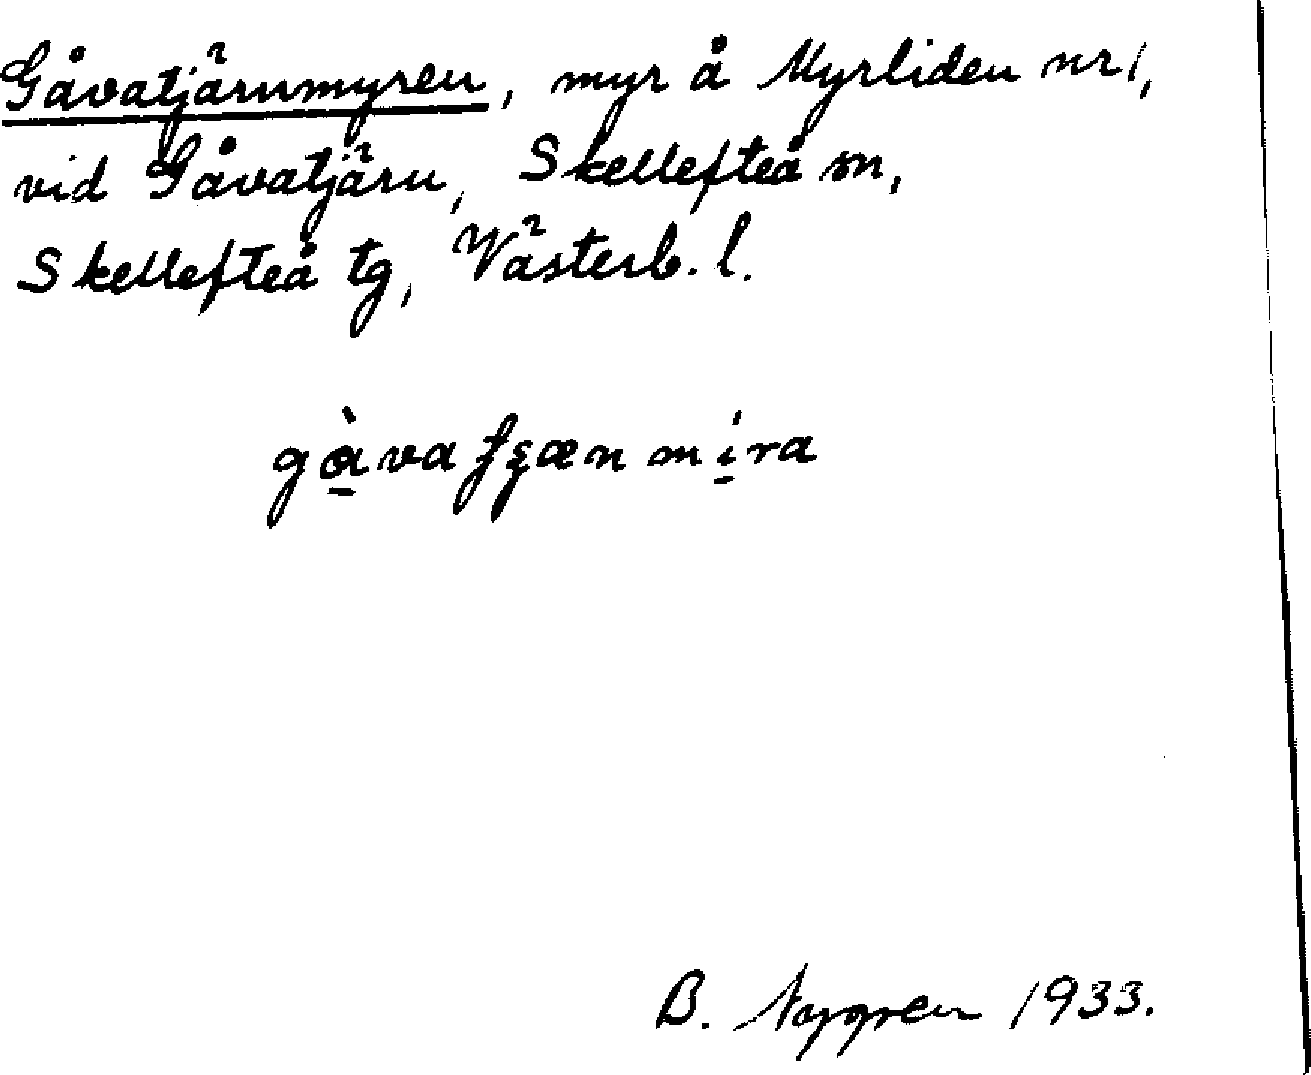 Gåvatjärnmyren, myr å Myrliden nr 1,
vid Gåvatjärn, Skellefteå sn,
Skellefteå tg, Västerb. l.
B. Nygren 1933.